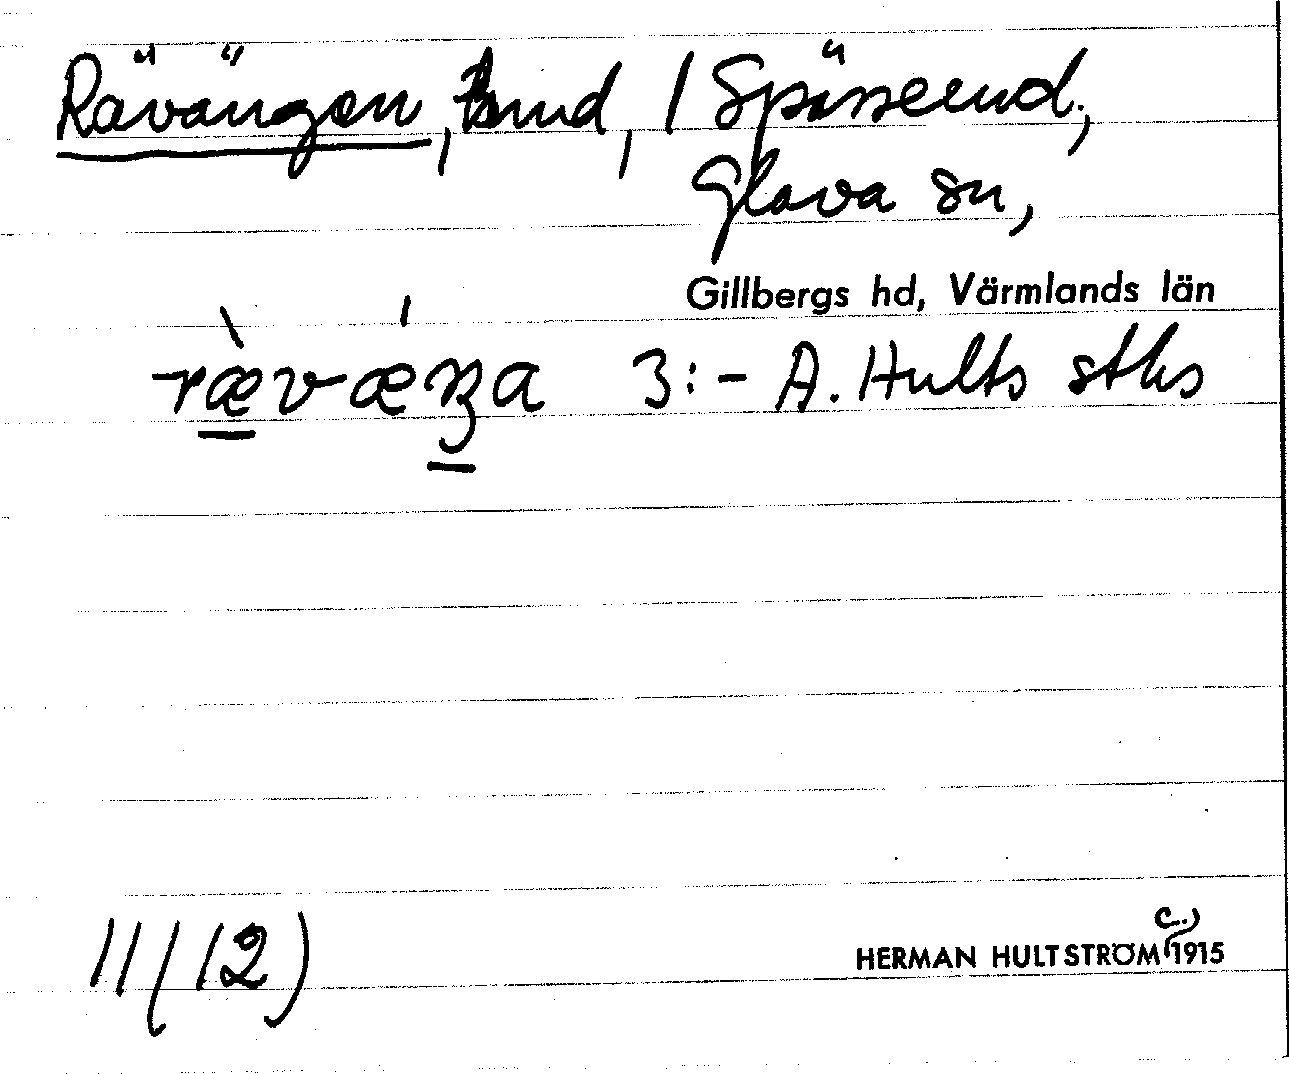 Rävängen, tmd, / Spässerud,
Glava sn,
Gillbergs hd, Värmlands län
rævæŋa 3:- A. Hults sths
11 (12)
HERMAN HULTSTRÖM (c.) 1915